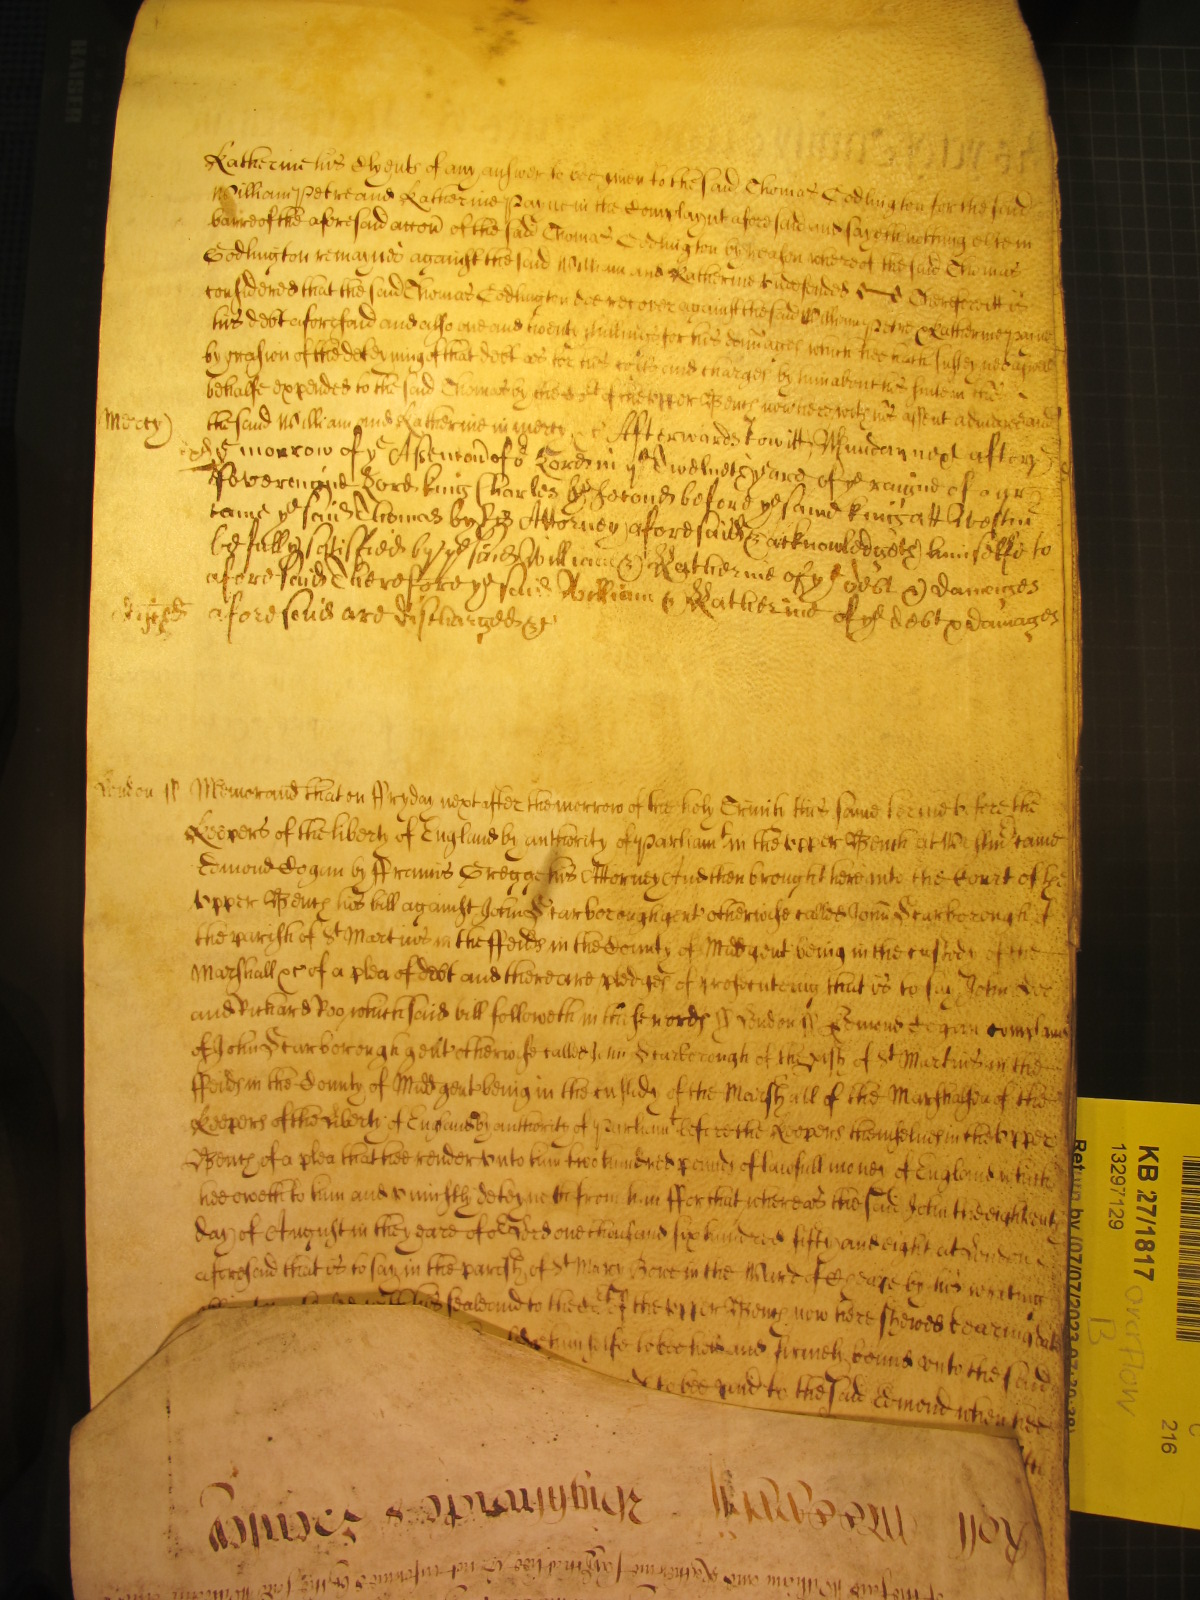 Katherine his Clyents of any answer to bee given to the said Thomas Codlington for the said
William Petre and Katherine Payne in the Complaynt aforesaid and sayeth nothing else in
barre of the aforesaid accon of the said Thomas Codlington by reason whereof the said Thomas
Codlington remaynes against the said William and Katherine undefended Therefore it is
considered that the said Thomas Codlington doe recover against the said William Petre & Katherine Payne
his debt aforesaid and also one and twenty shillings for his damages which hee hath susteyned aswell
by occasion of the deteyning of that debt as for his costs and charges by him about his suite in this
behalfe expended to the said Thomas by the Court of the Upper Bench now here with his assent adiudged and
Mercy) the said William and Katherine in mercy &c Afterwards to witt Munday next after
ye morrow of ye Ascencon of or Lord in ye Twelueth yeare of ye raigne of our
Sovereigne Lord King Charles ye Second before ye said King att Westm
came ye said Thomas by his Attorney aforesaid & acknowledgeth himselfe to
be fully satisfied by ye said William & Katherine of ye debt & damages
aforesaid Therefore ye said William & Katherine of ye debt & damages
aforesaid are discharged &c
London ss Memorand that on Fryday next after the morrow of the holy Trinity this same terme before the
Keepers of the liberty of England by authority of Parliamt in the Upper Bench at Westm came
Edmond Cogan by Francis Gregge his Attorney And then brought here into the Court of the
Upper Bench his bill against John Scarborough gent otherwise called John Scarborough of
the parish of St Martins in the ffeilds in the County of Midd gent being in the custody of the
Marshall &c of a plea of debt and there are pledges of prosecuteing that is to say John Doe
and Richard Roo which said bill followeth in these words ss London ss Edmond Cogan complaines
of John Scarborough gent otherwise called John Scarborough of the pish of St Martins in the
ffeilds in the County of Midd gent being in the custody of the Marshall of the Marshalsea of the
Keepers of the liberty of England by authority of Parliamt before the Keepers themselves in the Upper
Bench of a plea that hee render unto him two hundred pounds of lawfull money of England which
hee oweth to him and uniustly deteyneth from him ffor that whereas the said John the eighteenth
day of August in the yeare of or Lord one thousand six hundred fifty and eight at London
aforesaid that is to say in the parish of St Mary Bowe in the Ward of Cheape by his writing
his seale and to the Court of the Upper Bench now here shewed bearing date
himselfe to bee held and firmely bound unto the said
to bee paid to the said Edmond when hee
KB 27/1817
13297129
Return by (07/07/2023
overflow
B
216
HAISER
Roll